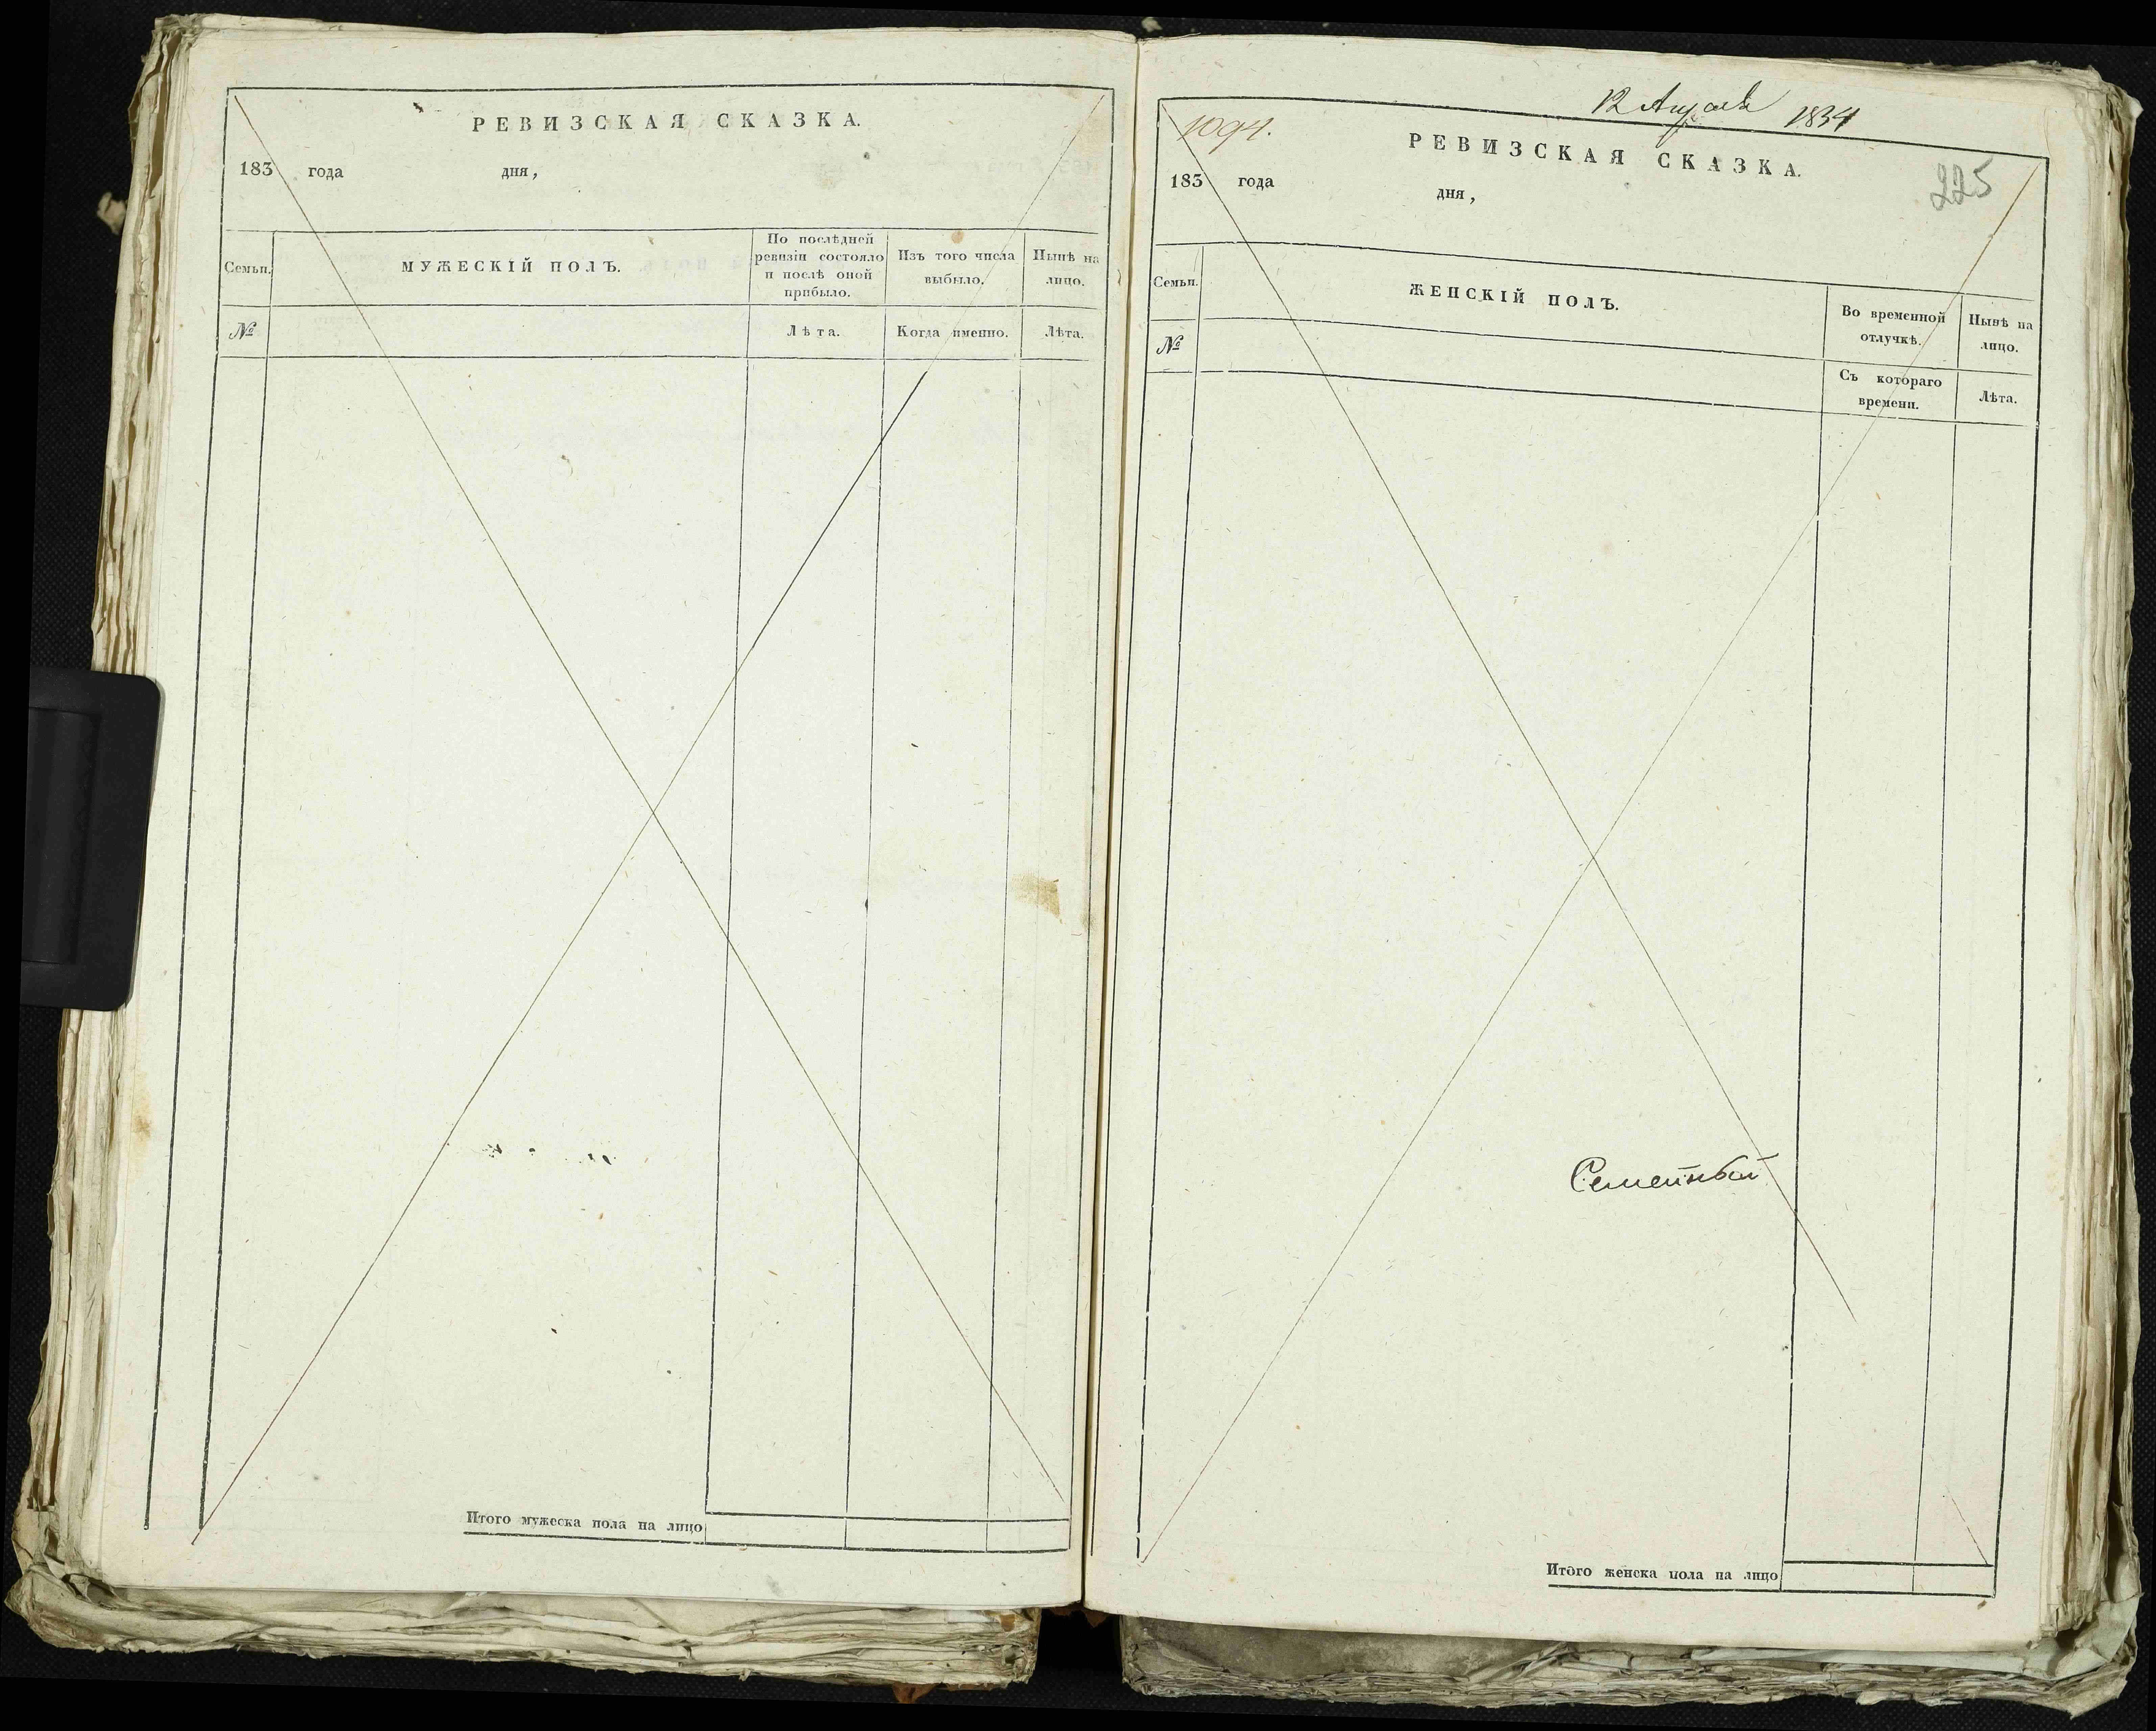 РЕВИЗСКАЯ СКАЗКА.
183 года дня,
Семьи.
МУЖЕСКІЙ ПОЛЪ.
По послѣдней
ревизіи состояло
и послѣ оной
прибыло.
Изъ того числа
выбыло.
Нынѣ на
лицо.
№
Лѣта.
Когда именно.
Лѣта.
Итого мужеска пола на лицо
12 Апреля 1834
1094.
РЕВИЗСКАЯ СКАЗКА.
225
183 года дня,
Семьи.
ЖЕНСКІЙ ПОЛЪ.
Во временной
отлучкѣ.
Нынѣ на
лицо.
№
Съ котораго
времени.
Лѣта.
Итого женска пола на лицо